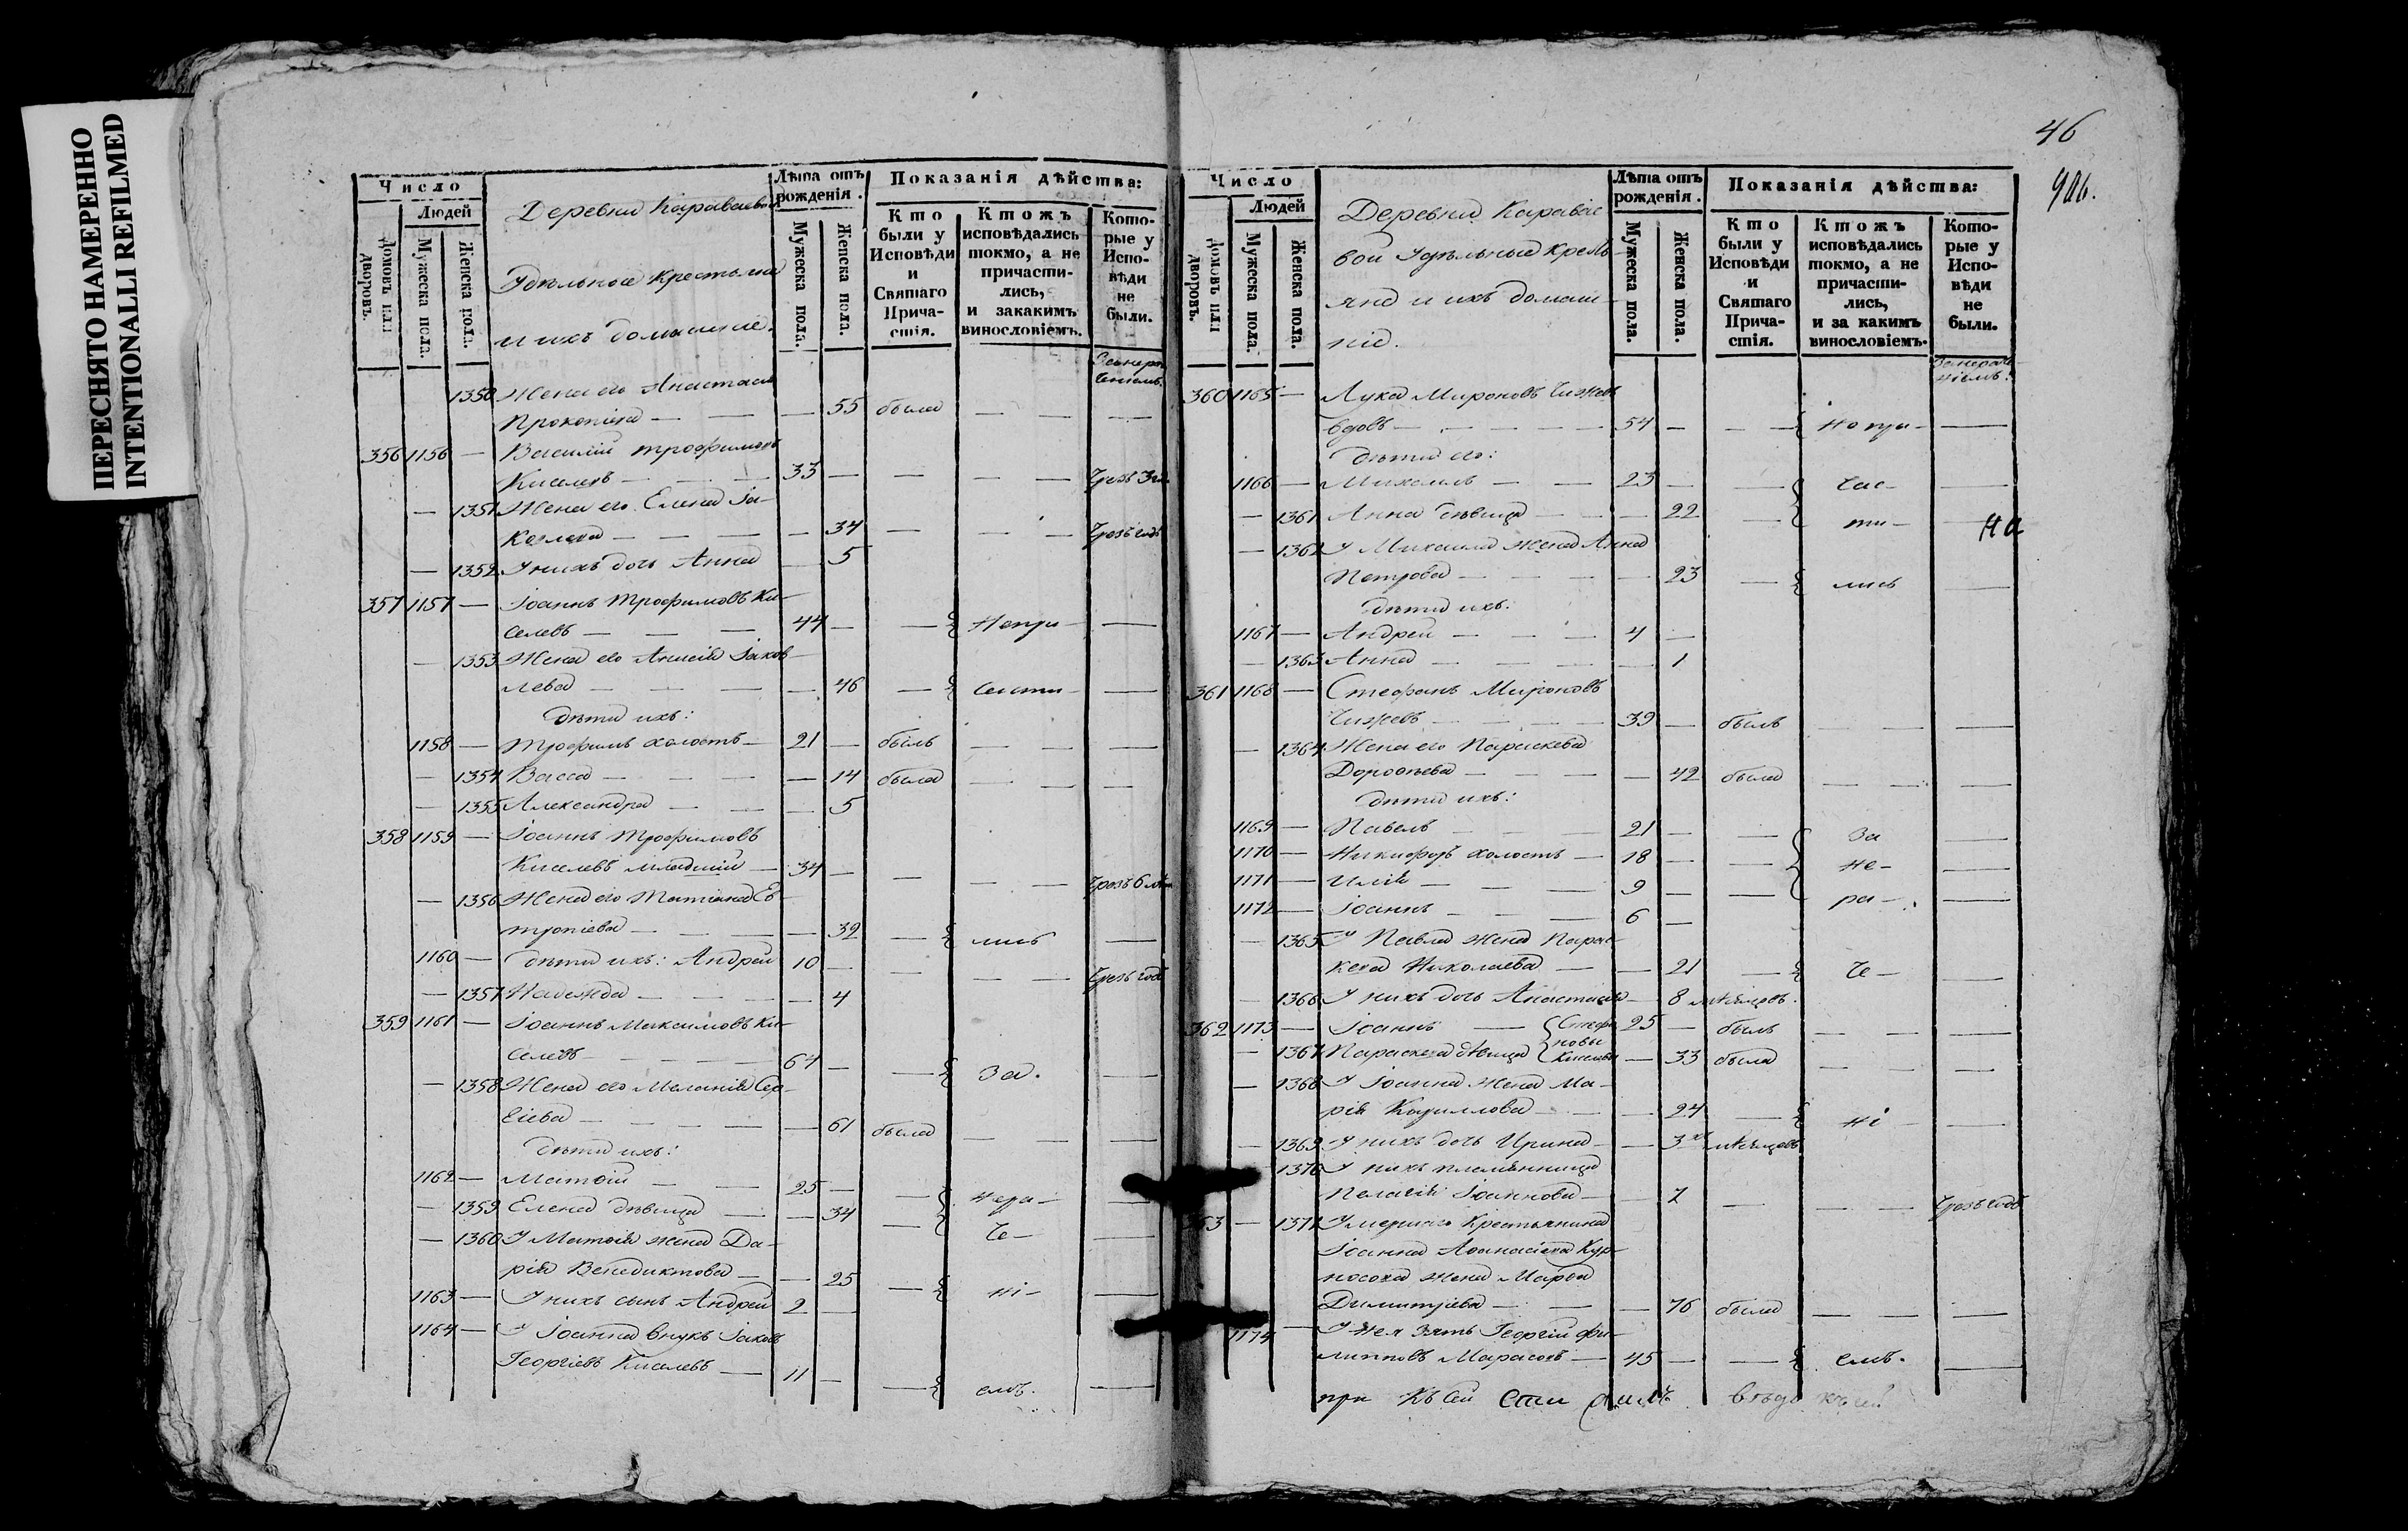 ПЕРЕСНЯТО НАМЕРЕННО
INTENTIONALLI REFILMED
Число
Людей
домовъ или дворовъ.
Мужеска пола.
Женска пола.
Деревни Караваевой
Удѣльные крестьяна
и ихъ домашніе.
Лѣта отъ рожденія.
Мужеска пола.
Женска пола.
Показанія дѣйства:
Кто были у Исповѣди и Святаго Прича-стія.
Ктожъ исповѣдались токмо, а не причасти-лись, и закакимъ винословіемъ.
Кото-рые у Испо-вѣди не были.
1350 Жена его Анастасія
Прокопіева — — — 55 была — — —
356 1156 — Василій Трофимовъ
Киселевъ — — — 33 — — — — Чрезъ 3 г.
— 1351 Жена его Елена Іа-
ковлева — — — — 34 — — — Чрезъ годъ
— 1352 У нихъ дочь Анна — 5
357 1157 — Іоаннъ Трофимовъ Ки-
селевъ — — — 44 — — Непри- —
— 1353 Жена его Анисія Іаков-
лева — — — — 46 — части- —
дѣти ихъ:
1158 — Трофимъ холостъ — 21 — былъ — — —
— 1354 Васса — — — — 14 была — — —
— 1355 Александра — — — 5
358 1159 — Іоаннъ Трофимовъ
Киселевъ младшій — 34 — — — — Чрезъ 6 лѣт
— 1356 Жена его Татіана Ев-
тропіева — — — — 32 — лись —
1160 — дѣти ихъ: Андрей 10 — — — — Чрезъ годъ
— 1357 Надежда — — — — 4
359 1161 — Іоаннъ Максимовъ Ки-
селевъ — — — — 64 — — За. —
— 1358 Жена его Меланія Сер-
гіева — — — — — 61 была — — —
дѣти ихъ:
1162 — Матѳій — — 25 — — нера- —
— 1359 Елена дѣвица — — 34 — че- —
— 1360 У Матѳія жена Да-
рія Венедиктова — — 25 — ні- —
1163 — У нихъ сынъ Андрей 2 —
1164 — У Іоанна внукъ Іаковъ
Георгіевъ Киселевъ — 11 — — емъ. —
46
Число
Людей
домовъ или дворовъ.
Мужеска пола.
Женска пола.
Деревни Каравае-
вой Удѣльные Кресть-
яна и ихъ домаш-
ніе.
Лѣта отъ рожденія.
Мужеска пола.
Женска пола.
Показанія дѣйства:
Кто были у Исповѣди и Святаго Прича-стія.
Ктожъ исповѣдались токмо, а не причасти-лись, и за какимъ винословіемъ.
Кото-рые у Испо-вѣди не были.
360 1165 — Лука Мироновъ Чижевъ
вдовъ — — — — — 54 — — — Непри- —
дѣти его:
1166 — Михаилъ — — 23 — — час- —
— 1361 Анна дѣвица — — — 22 — ти- —
на
— 1362 У Михаила жена Анна
Петрова — — — — 23 — лись —
дѣти ихъ:
1167 — Андрей — — — 4 —
— 1363 Анна — — — — 1
361 1168 — Стефанъ Мироновъ
Чижевъ — — — — 39 — былъ — — —
— 1364 Жена его Параскева
Дороѳеева — — — — 42 была — — —
дѣти ихъ:
1169 — Павелъ — — — 21 — — За —
1170 — Никифоръ холостъ — 18 — — не- —
1171 — Илія — — — 9 — — ра- —
1172 — Іоаннъ — — — 6 —
— 1365 У Павла жена Парас-
кева Николаева — — 21 — че- —
— 1366 У нихъ дочь Анастасія — 8 мѣсяцовъ.
362 1173 — Іоаннъ — Стефа- 25 — былъ — — —
новы
— 1367 Параскева дѣвица Киселевы — 33 была — — —
— 1368 У Іоанна жена Ма-
рія Кирилова — — — 24 — ні —
— 1369 У нихъ дочь Ирина — — 3хъ мѣсяцовъ
1370 У нихъ племянница
Пелагія Іоаннова — — 7 — — — Чрезъ годъ
363 — 1371 Умершаго Крестьянина
Іоанна Аѳанасіева Кур-
носова жена Марѳа
Димитріева — — — 76 была — — —
1174 — У нея зять Георгій Фи-
липповъ Марасовъ — 45 — — емъ. —
при къ сей